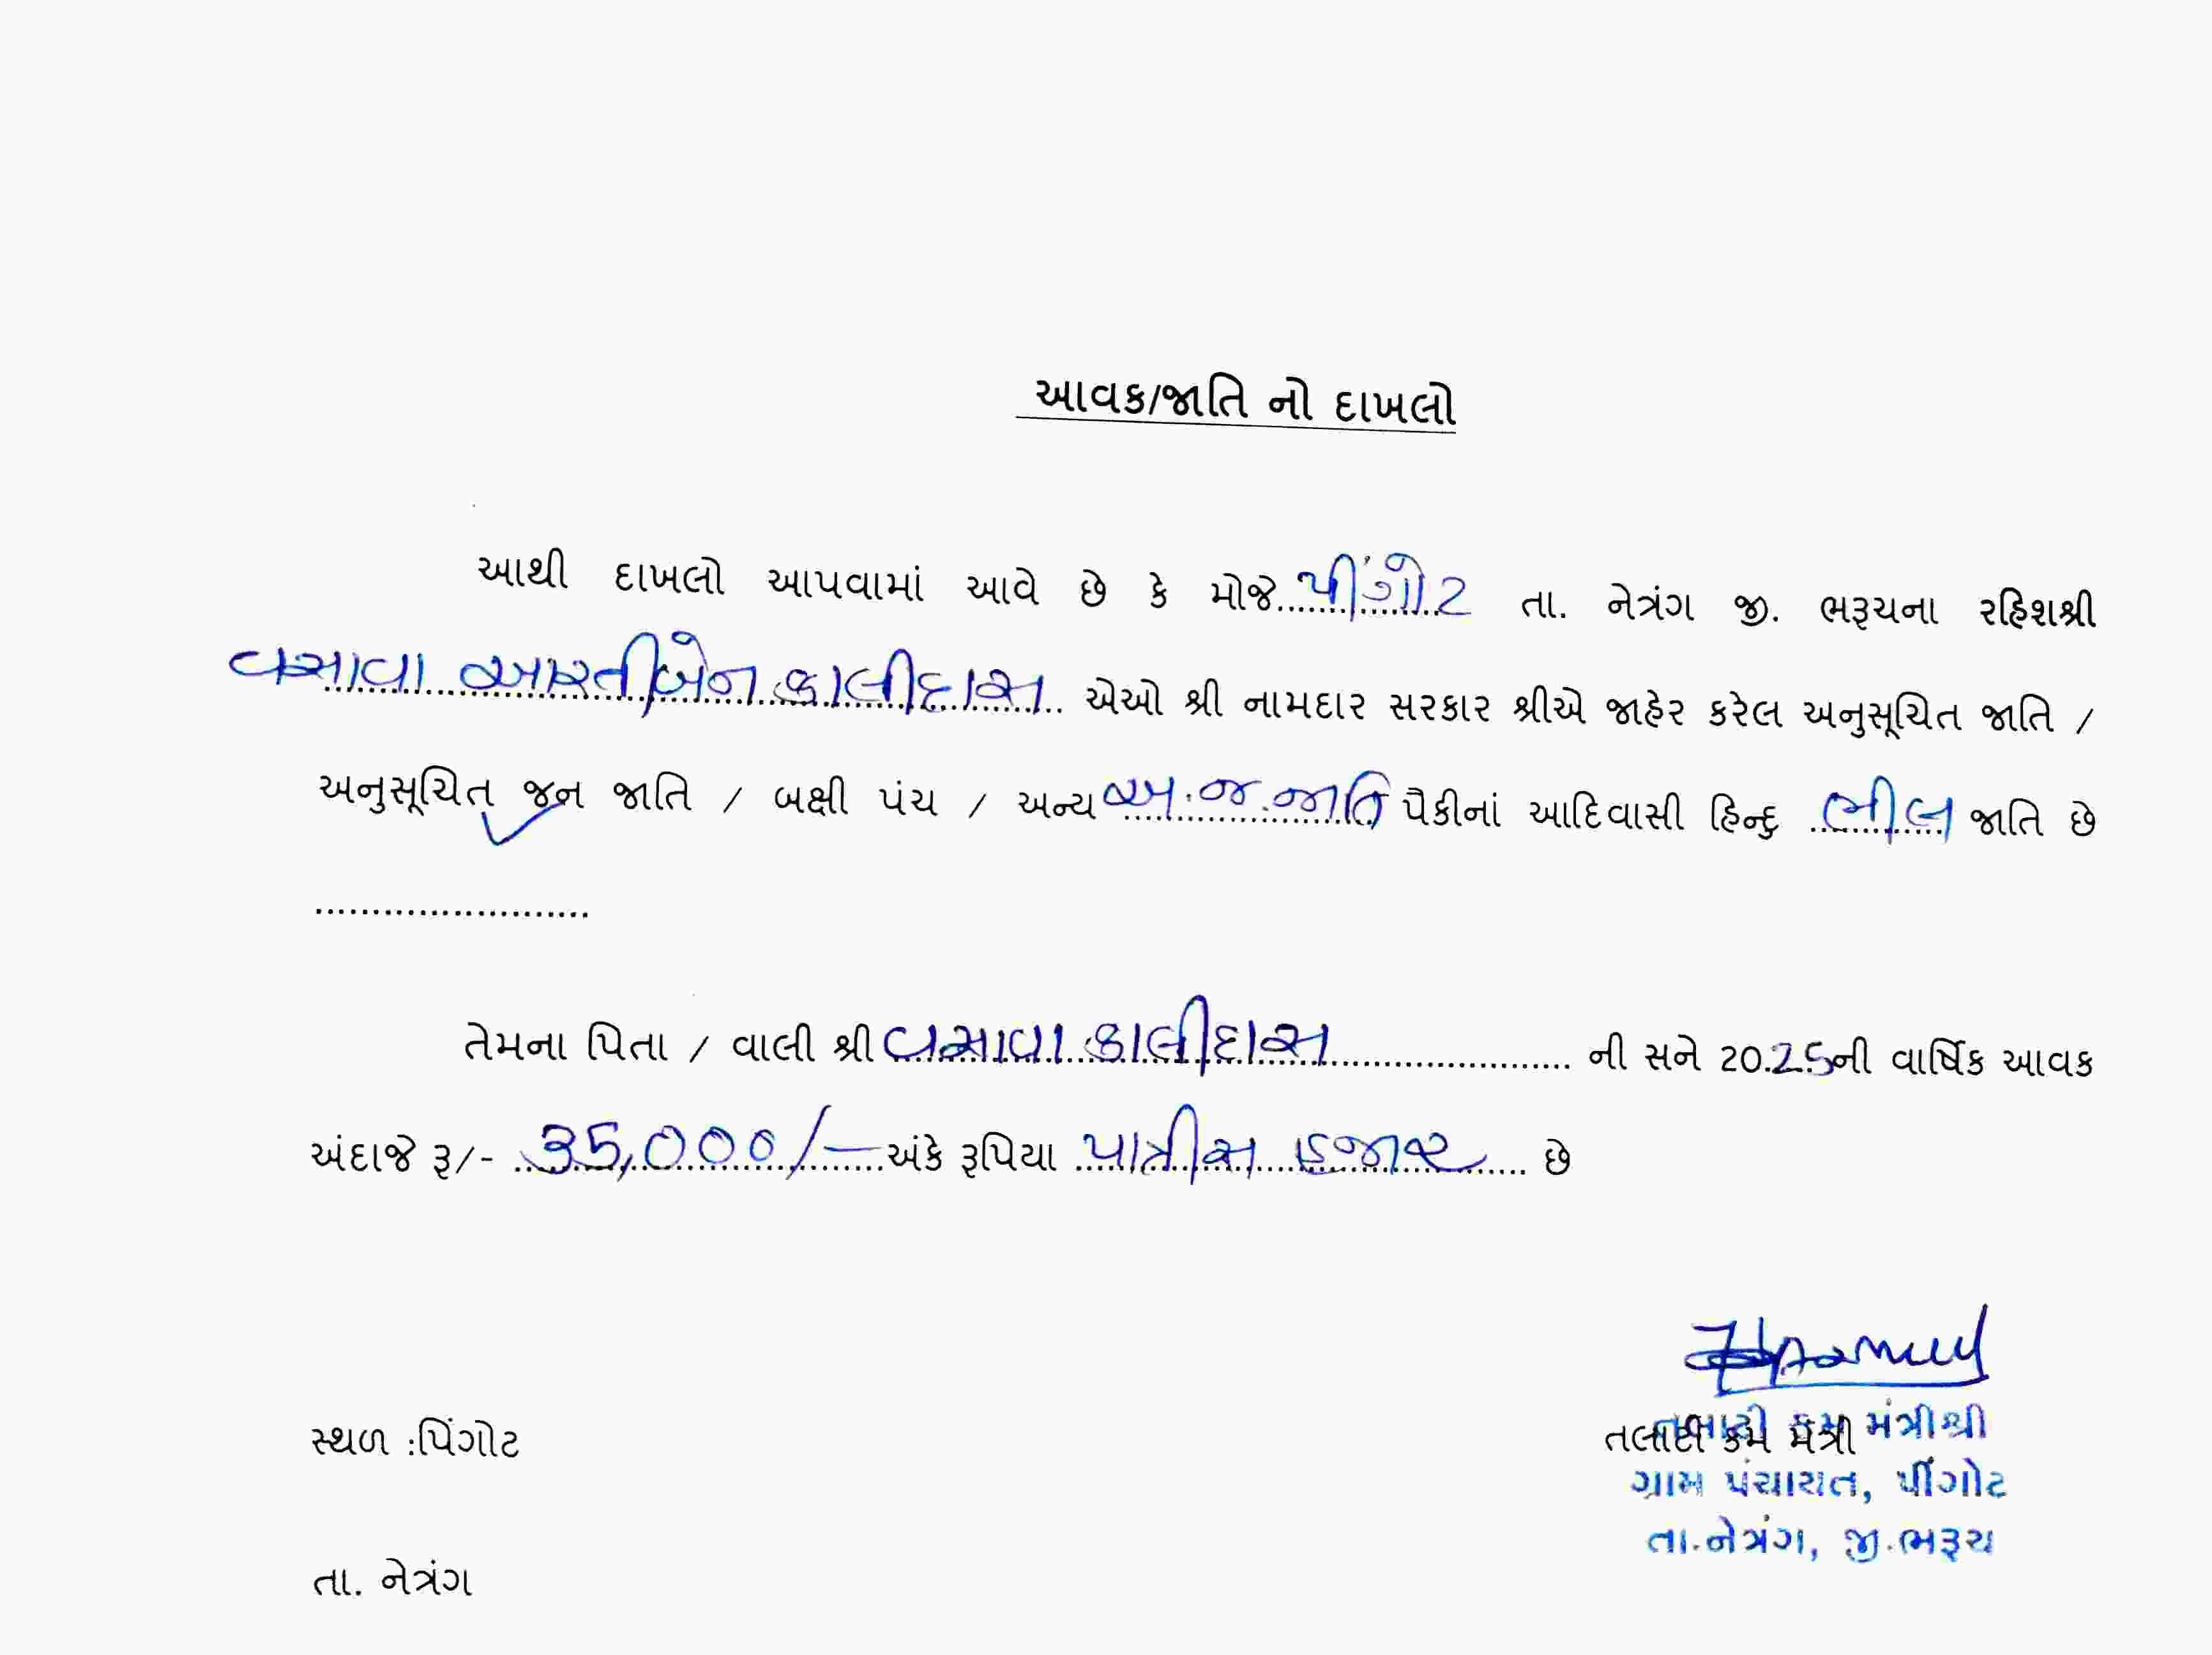 આવક/જાતિ નો દાખલો
આથી દાખલો આપવામાં આવે છે કે મોજે પીંગોટ તા. નેત્રંગ જી. ભરૂચના રહિશશ્રી
વસાવા આરતીબેન કાલીદાસ એઓ શ્રી નામદાર સરકાર શ્રીએ જાહેર કરેલ અનુસૂચિત જાતિ /
અનુસૂચિત જન જાતિ / બક્ષી પંચ / અન્ય અ.જ.જાતિ પૈકીનાં આદિવાસી હિન્દુ ભીલ જાતિ છે
........................
તેમના પિતા / વાલી શ્રી વસાવા કાલીદાસ ની સને 20.25ની વાર્ષિક આવક
અંદાજે રૂ/- 35,000/- અંકે રૂપિયા પાત્રીસ હજાર છે
તલાટી કમ મંત્રીશ્રી
સ્થળ :પિંગોટ
તલાટી કમ મંત્રી
ગ્રામ પંચાયત, પીંગોટ
તા.નેત્રંગ, જી.ભરૂચ
તા. નેત્રંગ